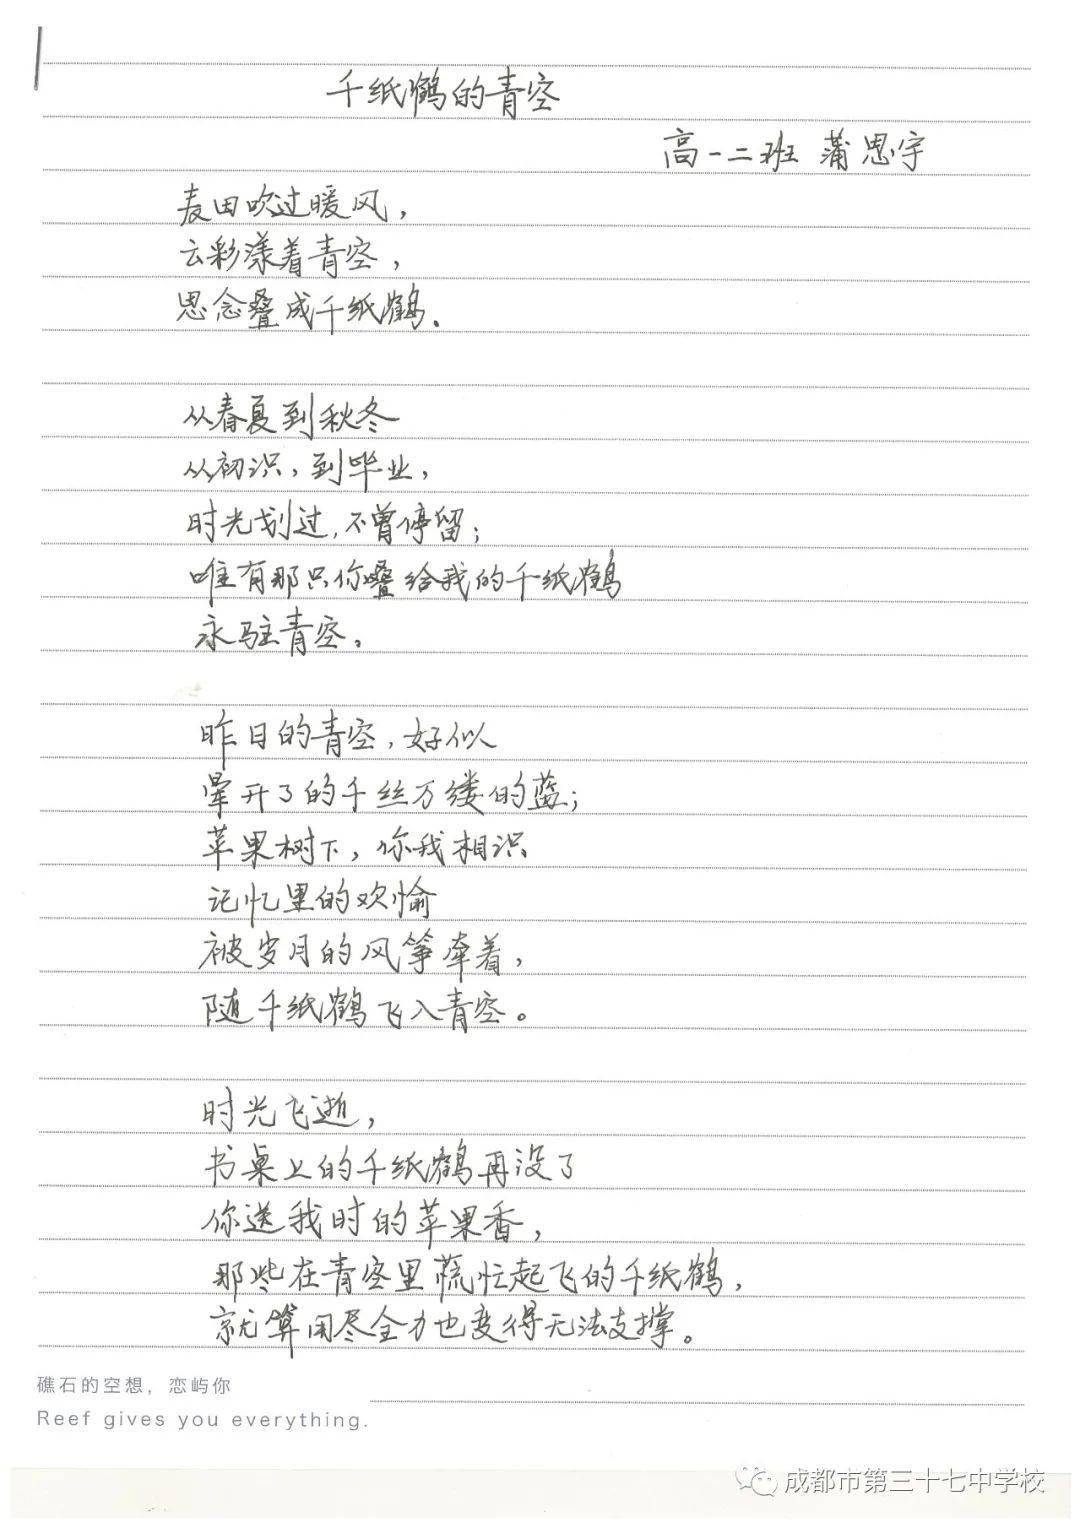 千纸鹤的青空
高一二班 蒲思宇
麦田吹过暖风，
云彩漾着青空，
思念叠成千纸鹤.
从春夏到秋冬
从初识，到毕业，
时光划过，不曾停留；
唯有那只你叠给我的千纸鹤
永驻青空。
昨日的青空，好似
晕开了的千丝万缕的蓝；
苹果树下，你我相识
记忆里的欢愉
被岁月的风筝牵着，
随千纸鹤飞入青空。
时光飞逝，
书桌上的千纸鹤再没了
你送我时的苹果香，
那些在青空里慌忙起飞的千纸鹤，
就算用尽全力也变得无法支撑。
礁石的空想，恋屿你
Reef gives you everything.
成都市第三十七中学校